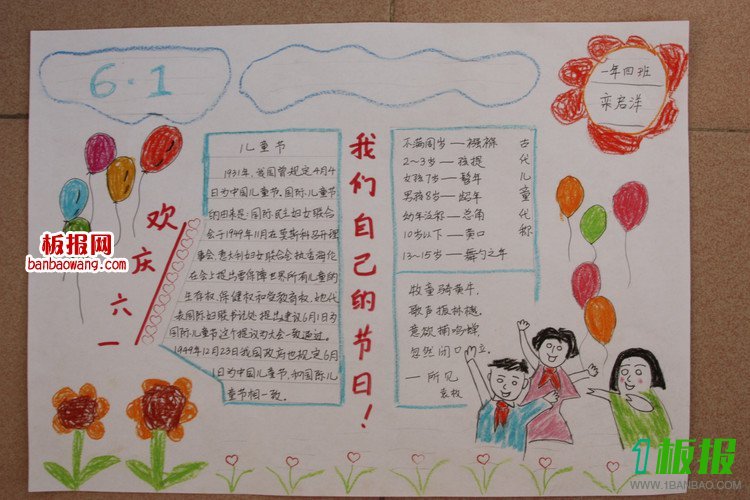 6·1
一年四班
栾启洋
欢庆六一
儿童节
1931年,我国曾规定4月4
日为中国儿童节。国际儿童节
的由来是:国际民主妇女联合
会于1949年11月在莫斯科召开理
事会,意大利妇女联合会执委海伦
在会上提出要保障世界所有儿童的
生存权、保健权和受教育权,她代
表国际妇联书记处提出建议6月1日为
国际儿童节这个提议为大会一致通过。
1949年12月23日我国政府也规定6月
1日为中国儿童节,和国际儿
童节相一致。
我们自己的节日!
古代儿童代称
不满周岁—襁褓
2~3岁—孩提
女孩7岁—髫年
男孩8岁—龆年
幼年泛称—总角
10岁以下—黄口
13~15岁—舞勺之年
牧童骑黄牛,
歌声振林樾。
意欲捕鸣蝉,
忽然闭口立。
—所见
袁枚
板报网
banbaowang.com
1板报
WWW.1BANBAO.COM